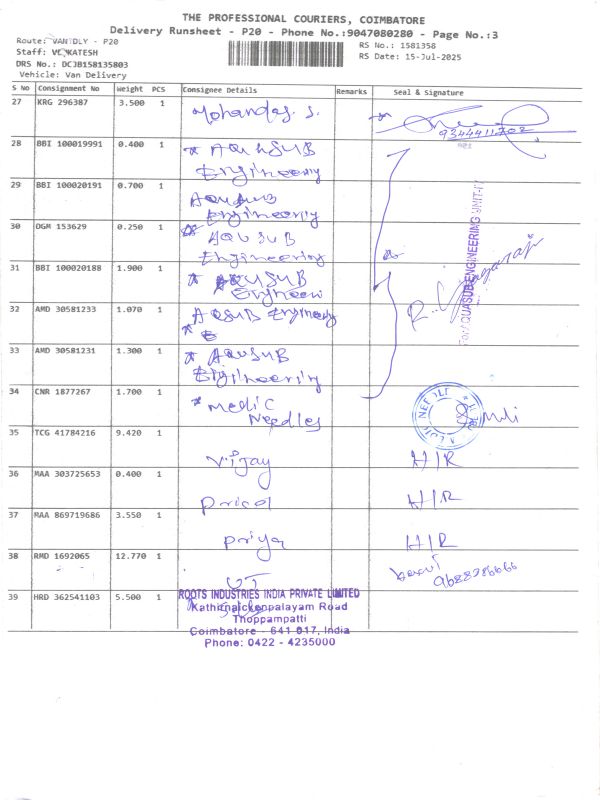 THE PROFESSIONAL COURIERS, COIMBATORE
Delivery Runsheet - P20 - Phone No.:9047080280 - Page No.:3
Route: VANIDLY - P20
RS No.: 1581358
Staff: VENKATESH
RS Date: 15-Jul-2025
DRS No.: DCJB158135803
Vehicle: Van Delivery
S No Consignment No Weight PCS Consignee Details Remarks Seal & Signature
27 KRG 296387 3.500 1 Mohandas. S.
9344411702
28 BBI 100019991 0.400 1 * AQUASUB
Engineering
29 BBI 100020191 0.700 1 AQUASUB
Engineering
30 DGM 153629 0.250 1 AQUSUB
Engineering
31 BBI 100020188 1.900 1 * AQUSUB
Engineeri
For AQUASUB ENGINEERING UNIT-II
R.
32 AMD 30581233 1.070 1 AQSUB Engineering
33 AMD 30581231 1.300 1 * AQUSUB
Engineering
34 CNR 1877267 1.700 1 * Medic
Needles
35 TCG 41784216 9.420 1 Vijay H/R
36 MAA 303725653 0.400 1 Pricol H/R
37 MAA 869719686 3.550 1 Priya H/R
38 RMD 1692065 12.770 1 UT
39 HRD 362541103 5.500 1
ROOTS INDUSTRIES INDIA PRIVATE LIMITED
Kathirnaickenpalayam Road
Thoppampatti
Coimbatore - 641 017, India
Phone: 0422 - 4235000